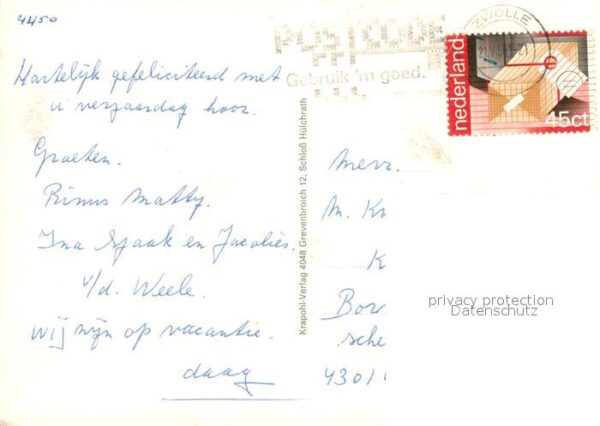 4450
Hartelijk gefeliciteerd met
u verjaardag hoor.
Groeten.
Rinus Matty.
Ina Sjaak en Jacolies.
v/d. Weele.
wij zijn op vacantie.
daag
Krapohl-Verlag 4048 Grevenbroich 12, Schloß Hülchrath
POSTCODE
Gebruik 'm goed.
ZWOLLE
nederland
45ct
Mevr.
M. Kr
K
Bor
sche
privacy protection
Datenschutz